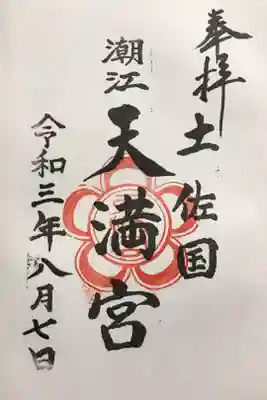 奉拝
土佐国
潮江
天満宮
令和三年八月七日